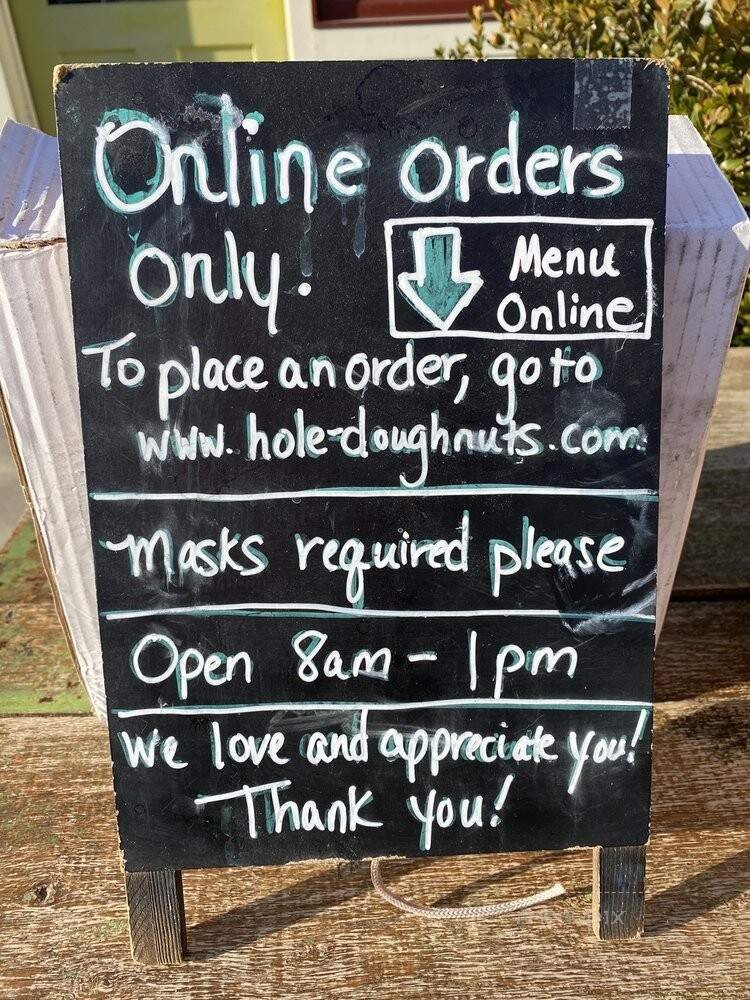 Online orders
only.
Menu
Online
To place an order, go to
www.hole-doughnuts.com
Masks required please
Open 8am - 1pm
We love and appreciate you!
Thank you!